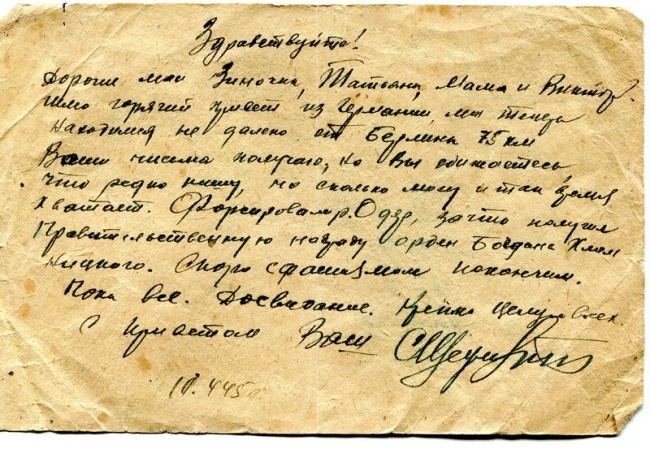 Здравствуйте!
Дорогие мои Зиночка, Татьяна, Мама и Виктор.
Шлю горячий привет из Германии, мы теперь
находимся не далеко от Берлина 75 км
Ваши письма получаю, но Вы обижаетесь,
что редко пишу, но сколько могу и так время
хватает. Форсировали р. Одер, за что получил
Правительственную награду орден Богдана Хмель
ницкого. Скоро с фашизмом покончим.
Пока все. Досвидание. Крепко целую всех.
С приветом Ваш
10.4.45г